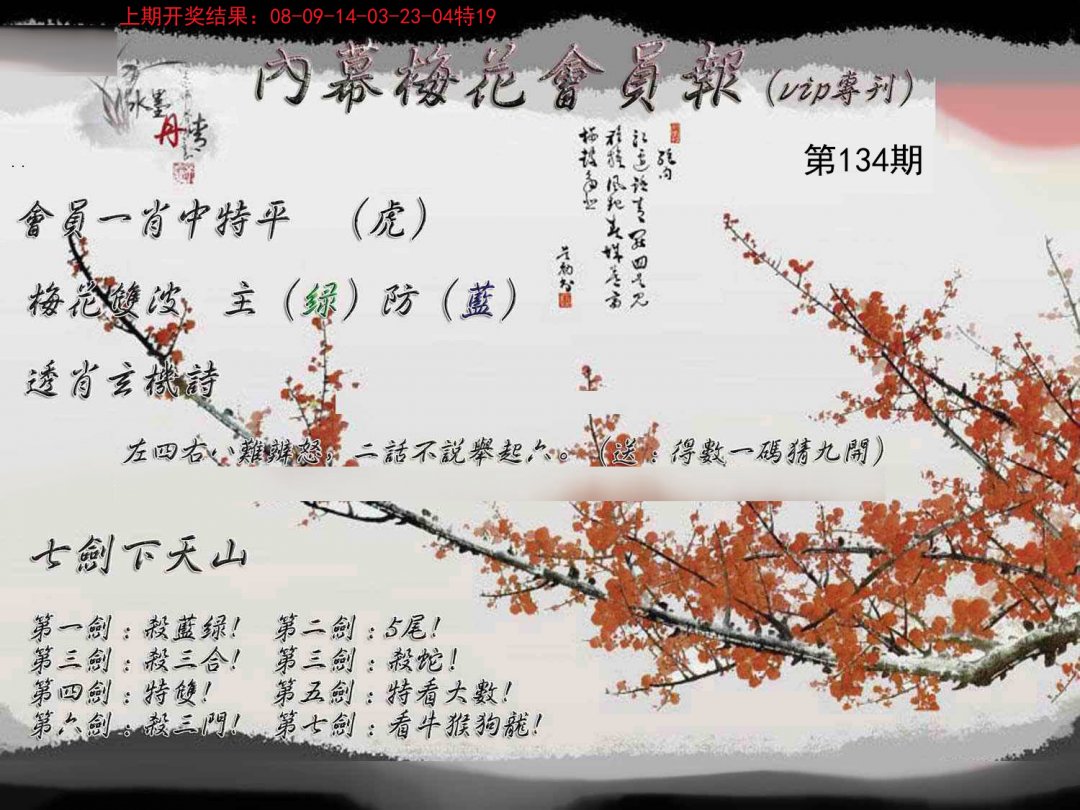 上期开奖结果：08-09-14-03-23-04特19
內幕梅花會員報（vip專刊）
水墨
丹青
第134期
會員一肖中特平 （虎）
梅花雙波 主（绿）防（藍）
透肖玄機詩
左四右八難辨怒，二話不說舉起六。（送：得數一碼猜九開）
七劍下天山
第一劍：殺藍绿！ 第二劍：5尾！
第三劍：殺三合！ 第三劍：殺蛇！
第四劍：特雙！ 第五劍：特看大數！
第六劍：殺三門！ 第七劍：看牛猴狗龍！